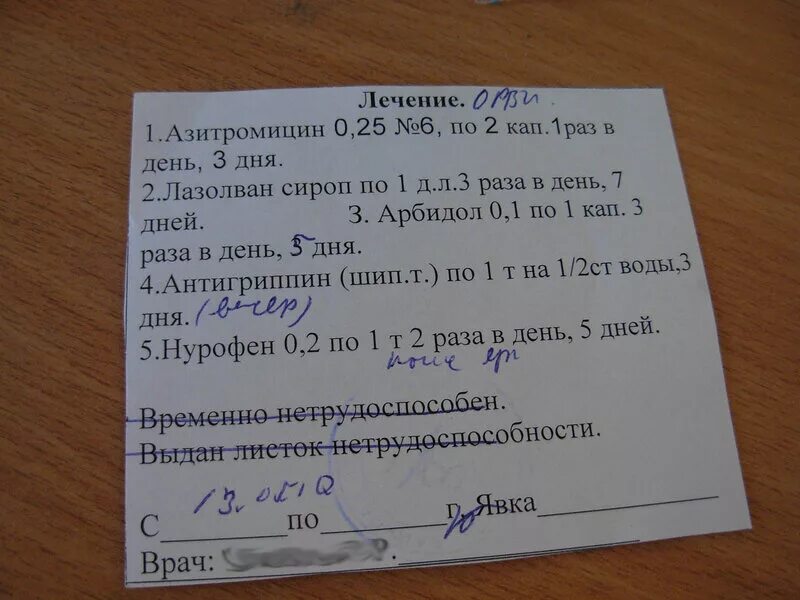 Лечение. ОРВИ.
1.Азитромицин 0,25 №6, по 2 кап.1раз в
день, 3 дня.
2.Лазолван сироп по 1 д.л.3 раза в день, 7
дней. 3. Арбидол 0,1 по 1 кап. 3
раза в день, 5 дня.
4.Антигриппин (шип.т.) по 1 т на 1/2ст воды,3
дня. (вечер)
5.Нурофен 0,2 по 1 т 2 раза в день, 5 дней.
Временно нетрудоспособен.
Выдан листок нетрудоспособности.
С_______по________г. Явка___________
Врач: